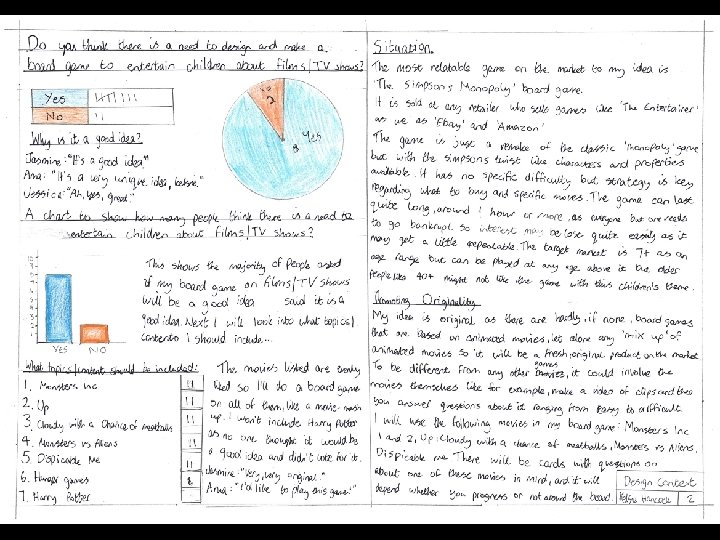 Do you think there is a need to design and make a
board game to entertain children about films/TV shows?
Yes
No
Yes
8
No
2
Why is it a good idea?
Jasmine: "It's a good idea"
Ana: "It's a very unique idea,
Jessica: "Ah, Yes, great."
A chart to show how many people think there is a need to
entertain children about films/TV shows?
YES
NO
This shows the majority of people asked
if my board game on films/TV shows
will be a good idea said it is a
good idea. Next I will look into what topics/
content I should include...
What topics/content should be included:
1. Monsters Inc
2. Up
3. Cloudy with a Chance of meatballs
4. Monsters vs Aliens
5. Dispicable Me
6. Hunger games
7. Harry Potter
The movies listed are evenly
liked so I'll do a board game
on all of them, like a movie-mash
up. I won't include Harry Potter
as no one thought it would be
a good idea and didn't vote for it.
Jasmine: "Very, very original."
Anna: "I'd like to play this game!"
Situation.
The most relatable game on the market to my idea is
'The Simpsons Monopoly' board game.
It is sold at any retailer who sells games like 'The Entertainer'
as well as 'Ebay' and 'Amazon'
The game is just a remake of the classic 'monopoly' game
but with the simpsons twist like characters and properties
available. It has no specific difficulty but strategy is key
regarding what to buy and specific moves. The game can last
quite long, around 1 hour or more, as everyone but one needs
to go bankrupt so interest may be lose quite easily as it
may get a little repeatable. The target market is 7+ as an
age range but can be played at any age above it but older
people like 40+ might not like the game with this children's theme.
Promoting Originality
My idea is original as there are hardly, if none, board games
that are based on animated movies, let alone any 'mix up' of
animated movies so it will be a fresh, original product on the market
To be different from any other games, it could involve the
movies themselves like for example, make a video of clips and then
you answer questions about it ranging from easy to difficult.
I will use the following movies in my board game: Monsters Inc
1 and 2, Up, Cloudy with a chance of meatballs, Monsters vs Aliens,
Dispicable me There will be cards with questions on
about one of these movies in mind, and it will
depend whether you progress or not around the board.
Design Context
Hancock 2